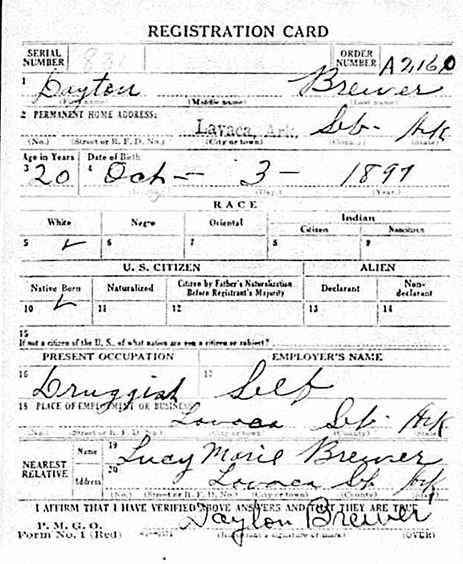 REGISTRATION CARD
SERIAL NUMBER 831 ORDER NUMBER A2160
1 Dayton Brewer
(First name) (Middle name) (Last name)
2 PERMANENT HOME ADDRESS: Lavaca, Ark. Seb- Ark
(No.) (Street or R. F. D. No.) (City or town) (County) (State)
Age in Years Date of Birth
3 20 4 Oct - 3 - 1897
(Day.) (Year.)
RACE
White Negro Oriental Indian
Citizen Noncitizen
5 6 7 8 9
U. S. CITIZEN ALIEN
Native Born Naturalized Citizen by Father's Naturalization Before Registrant's Majority Declarant Non-declarant
10 11 12 13 14
15
If not a citizen of the U. S., of what nation are you a citizen or subject?
PRESENT OCCUPATION EMPLOYER'S NAME
16 Druggist 17 Self
18 PLACE OF EMPLOYMENT OR BUSINESS:
Lavaca Seb. Ark
(No.) (Street or R. F. D. No.) (City or town) (County) (State)
NEAREST RELATIVE Name 19 Lucy Marie Brewer
Address 20 Lavaca Seb Ark
(No.) (Street or R. F. D. No.) (City or town) (County) (State)
I AFFIRM THAT I HAVE VERIFIED ABOVE ANSWERS AND THAT THEY ARE TRUE
P. M. G. O.
Form No. 1 (Red) Dayton Brewer
(Registrant's signature or mark) (OVER)